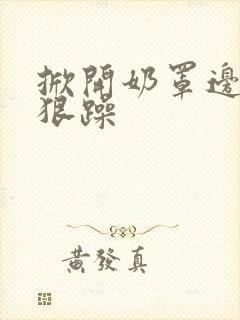 掀開奶罩邊
狠躁
黃發真